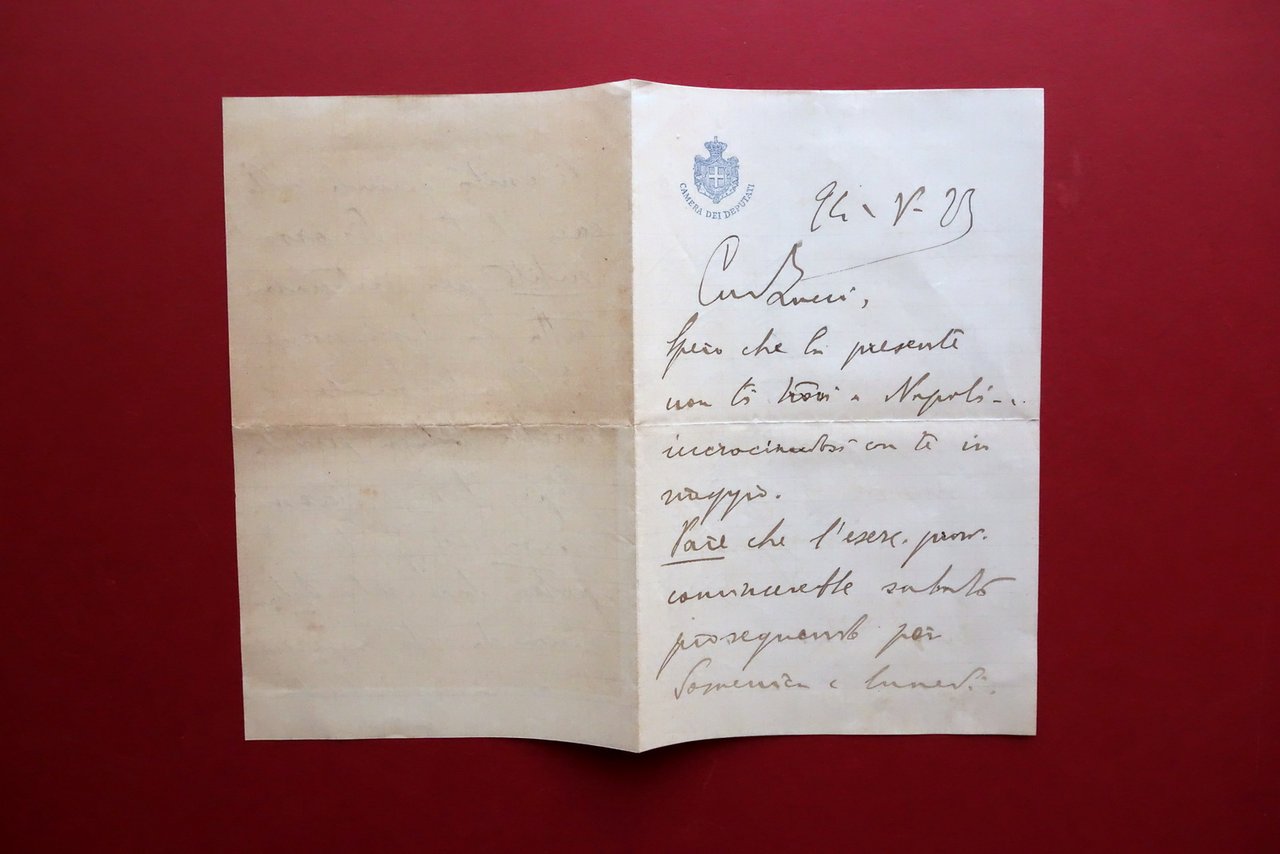 CAMERA DEI DEPUTATI
V
Spero che la presente
non ti trovi a Napoli - ..
incrociandosi con te in
viaggio.
Pare che l'eserc. provv.
comincerebbe sabato
proseguendo poi
Domenica e lunedì.